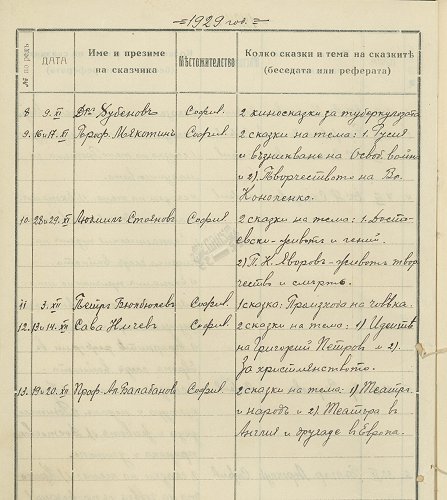 =1929 год.=
№ по редъ
ДАТА
Име и презиме
на сказчика
Мѣстожителство
Колко сказки и тема на сказкитѣ
(беседата или реферата)
8 9. XI Д-ръ Дубеновъ София 2 киносказки за туберкулозата
9. 16 и 17. XI Проф. Мякотинъ София. 2 сказки на тема: 1. Русия
и възникване на Освоб. война
и 2) Творчеството на Вл.
Короленко.
10. 28 и 29. XI Людмилъ Стояновъ София. 2 сказки на тема: 1. Досто-
евски - животъ и гений.
2) П. К. Яворовъ - животъ твор-
чество и смърть.
11 3. XII Петръ София. 1 сказка: Произхода на човѣка.
12. 13 и 14. XII Сава Ничевъ София. 2 сказки на тема: 1) Идеитѣ
на Григорий Петровъ и 2)
За християнството.
13. 19 и 20. XII Проф. Ал. Балабановъ София. 2 сказки на тема: 1) Театръ
и народъ и 2) Театъра в
Англия и другаде в Европа.